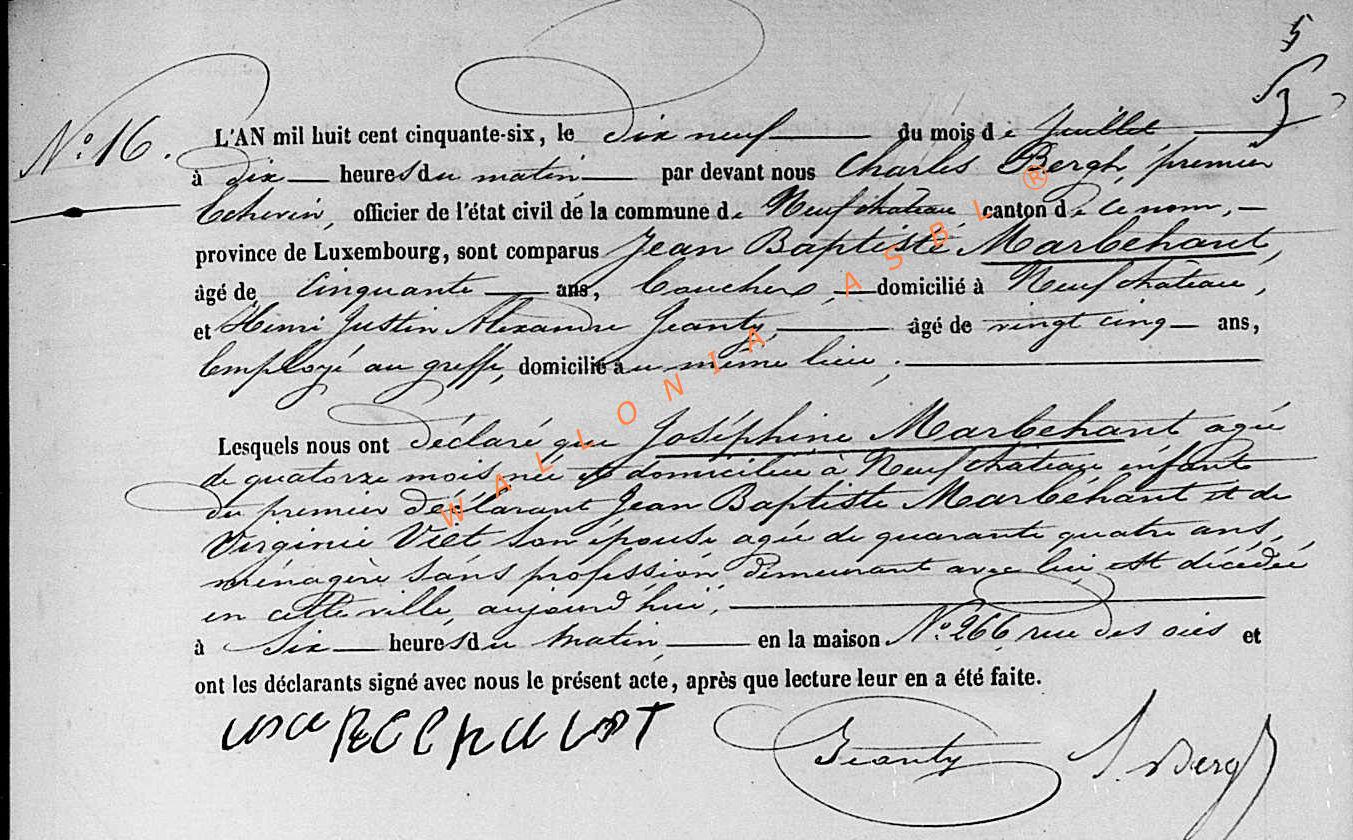 5
N° 16.
L'AN mil huit cent cinquante-six, le dix neuf du mois de Juillet
à dix heures du matin par devant nous Charles Bergh, premier
Echevin, officier de l'état civil de la commune de Neufchâteau canton de ce nom,
province de Luxembourg, sont comparus Jean Baptiste Marbehant,
âgé de Cinquante ans, domicilié à Neufchâteau,
et Henri Justin Alexandre Jeanty, âgé de vingt cinq ans,
Employé au greffe, domicilié au même lieu,
Lesquels nous ont déclaré que Joséphine Marbehant agée
de quatorze mois née et domiciliée à Neufchateau enfant
du premier déclarant Jean Baptiste Marbéhant et de
Virginie Viet son épouse agée de quarante quatre ans,
ménagère sans profession, demeurant avec lui, est décédée
en cette ville, aujourd'hui,
à Six heures du matin, en la maison N° 266, rue des oies et
ont les déclarants signé avec nous le présent acte, après que lecture leur en a été faite.
Jeanty Bergh
WALLONIA ASBL ®